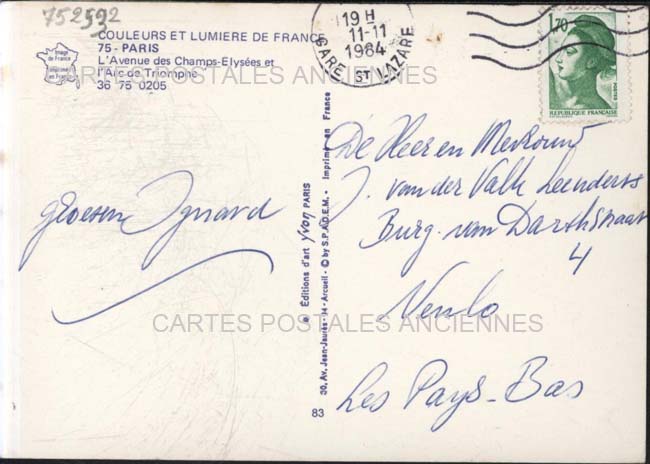 752592
COULEURS ET LUMIERE DE FRANCE
75 - PARIS
L'Avenue des Champs-Elysées et
l'Arc de Triomphe
36 75 0205
image de France
imprimé en France
19 H
11-11
1984
GARE ST LAZARE
1,70
REPUBLIQUE FRANÇAISE
CARTES POSTALES ANCIENNES
groeten
De Heer en Mevrouw
J. van der Valk Leenders
Burg. van
4
Venlo
Les Pays-Bas
CARTES POSTALES ANCIENNES
© Editions d'art Yvon PARIS
30, Av. Jean-Jaurès - 94 - Arcueil - © by S.P.A.D.E.M. - Imprimé en France
83